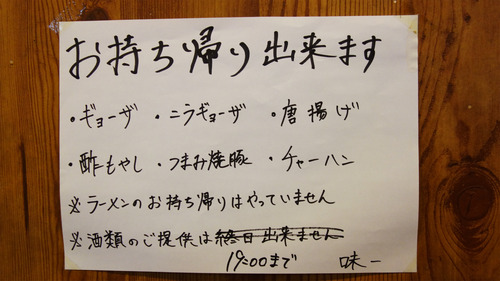 お持ち帰り出来ます
・ギョーザ ・ニラギョーザ ・唐揚げ
・酢もやし ・つまみ焼豚 ・チャーハン
※ラーメンのお持ち帰りはやっていません
※酒類のご提供は終日出来ません
19:00まで 味一